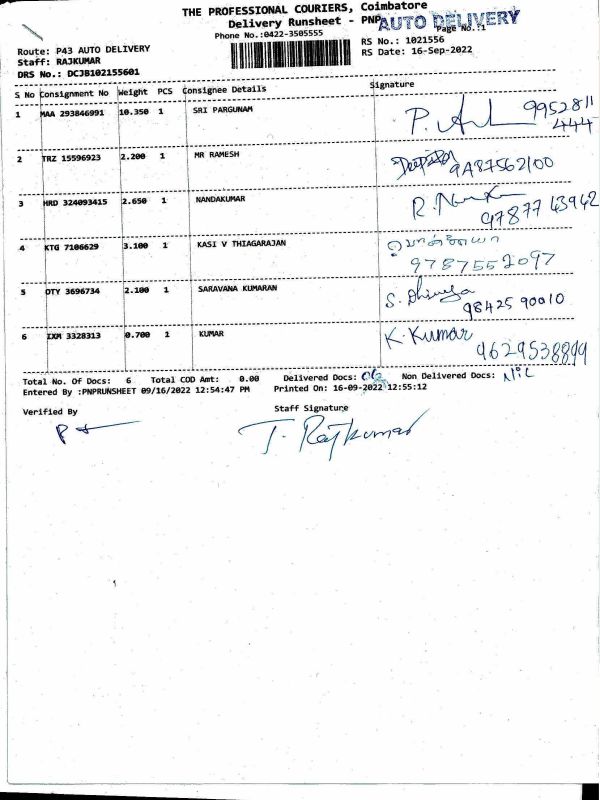 THE PROFESSIONAL COURIERS, Coimbatore
Delivery Runsheet - PNP
AUTO DELIVERY
Phone No.:0422-3505555
Page No.:1
Route: P43 AUTO DELIVERY
RS No.: 1021556
Staff: RAJKUMAR
RS Date: 16-Sep-2022
DRS No.: DCJB102155601
S No Consignment No Weight PCS Consignee Details Signature
1 MAA 293846991 10.350 1 SRI PARGUNAM P. 9952811
444
2 TRZ 15596923 2.200 1 MR RAMESH 9487562100
3 HRD 324093415 2.650 1 NANDAKUMAR R.
97877 43942
4 KTG 7106629 3.100 1 KASI V THIAGARAJAN
9787552097
5 OTY 3696734 2.100 1 SARAVANA KUMARAN S. Dhivya
98425 90010
6 IXM 3328313 0.700 1 KUMAR K. Kumar
9629538899
Total No. Of Docs: 6 Total COD Amt: 0.00 Delivered Docs: 06 Non Delivered Docs: Nil
Entered By :PNPRUNSHEET 09/16/2022 12:54:47 PM Printed On: 16-09-2022 12:55:12
Verified By Staff Signature
T. Rajkumar